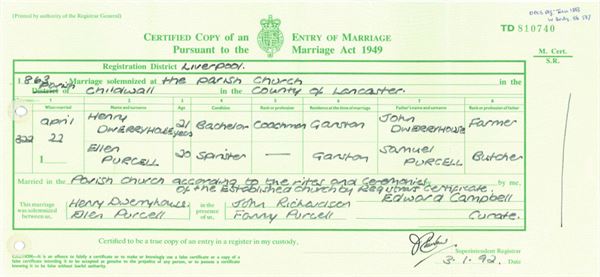 [Printed by authority of the Registrar General]
CERTIFIED COPY OF AN ENTRY OF MARRIAGE
Pursuant to the Marriage Act 1949
TD 810740
M. Cert.
S.R.
Registration District Liverpool.
1863 Marriage solemnized at the Parish Church in the
District of Parish Childwall in the County of Lancaster.
1 2 3 4 5 6 7 8
When married Name and surname Age Condition Rank or profession Residence at the time of marriage Father's name and surname Rank or profession of father
322 April 22 Henry DWERRYHOUSE 21 years Bachelor Coachman Garston John DWERRYHOUSE Farmer
Ellen PURCELL 20 Spinster — Garston Samuel PURCELL Butcher
Married in the Parish Church according to the rites and Ceremonies
of the Established Church by Registrars Certificate. by me,
This marriage was solemnized between us, Henry Dwerryhouse Ellen Purcell in the presence of us, John Richardson Fanny Purcell Edward Campbell Curate.
Certified to be a true copy of an entry in a register in my custody.
Superintendent Registrar
3.1.92. Date
CAUTION:—It is an offence to falsify a certificate or to make or knowingly use a false certificate or a copy of a
false certificate intending it to be accepted as genuine to the prejudice of any person, or to possess a certificate
knowing it to be false without lawful authority.